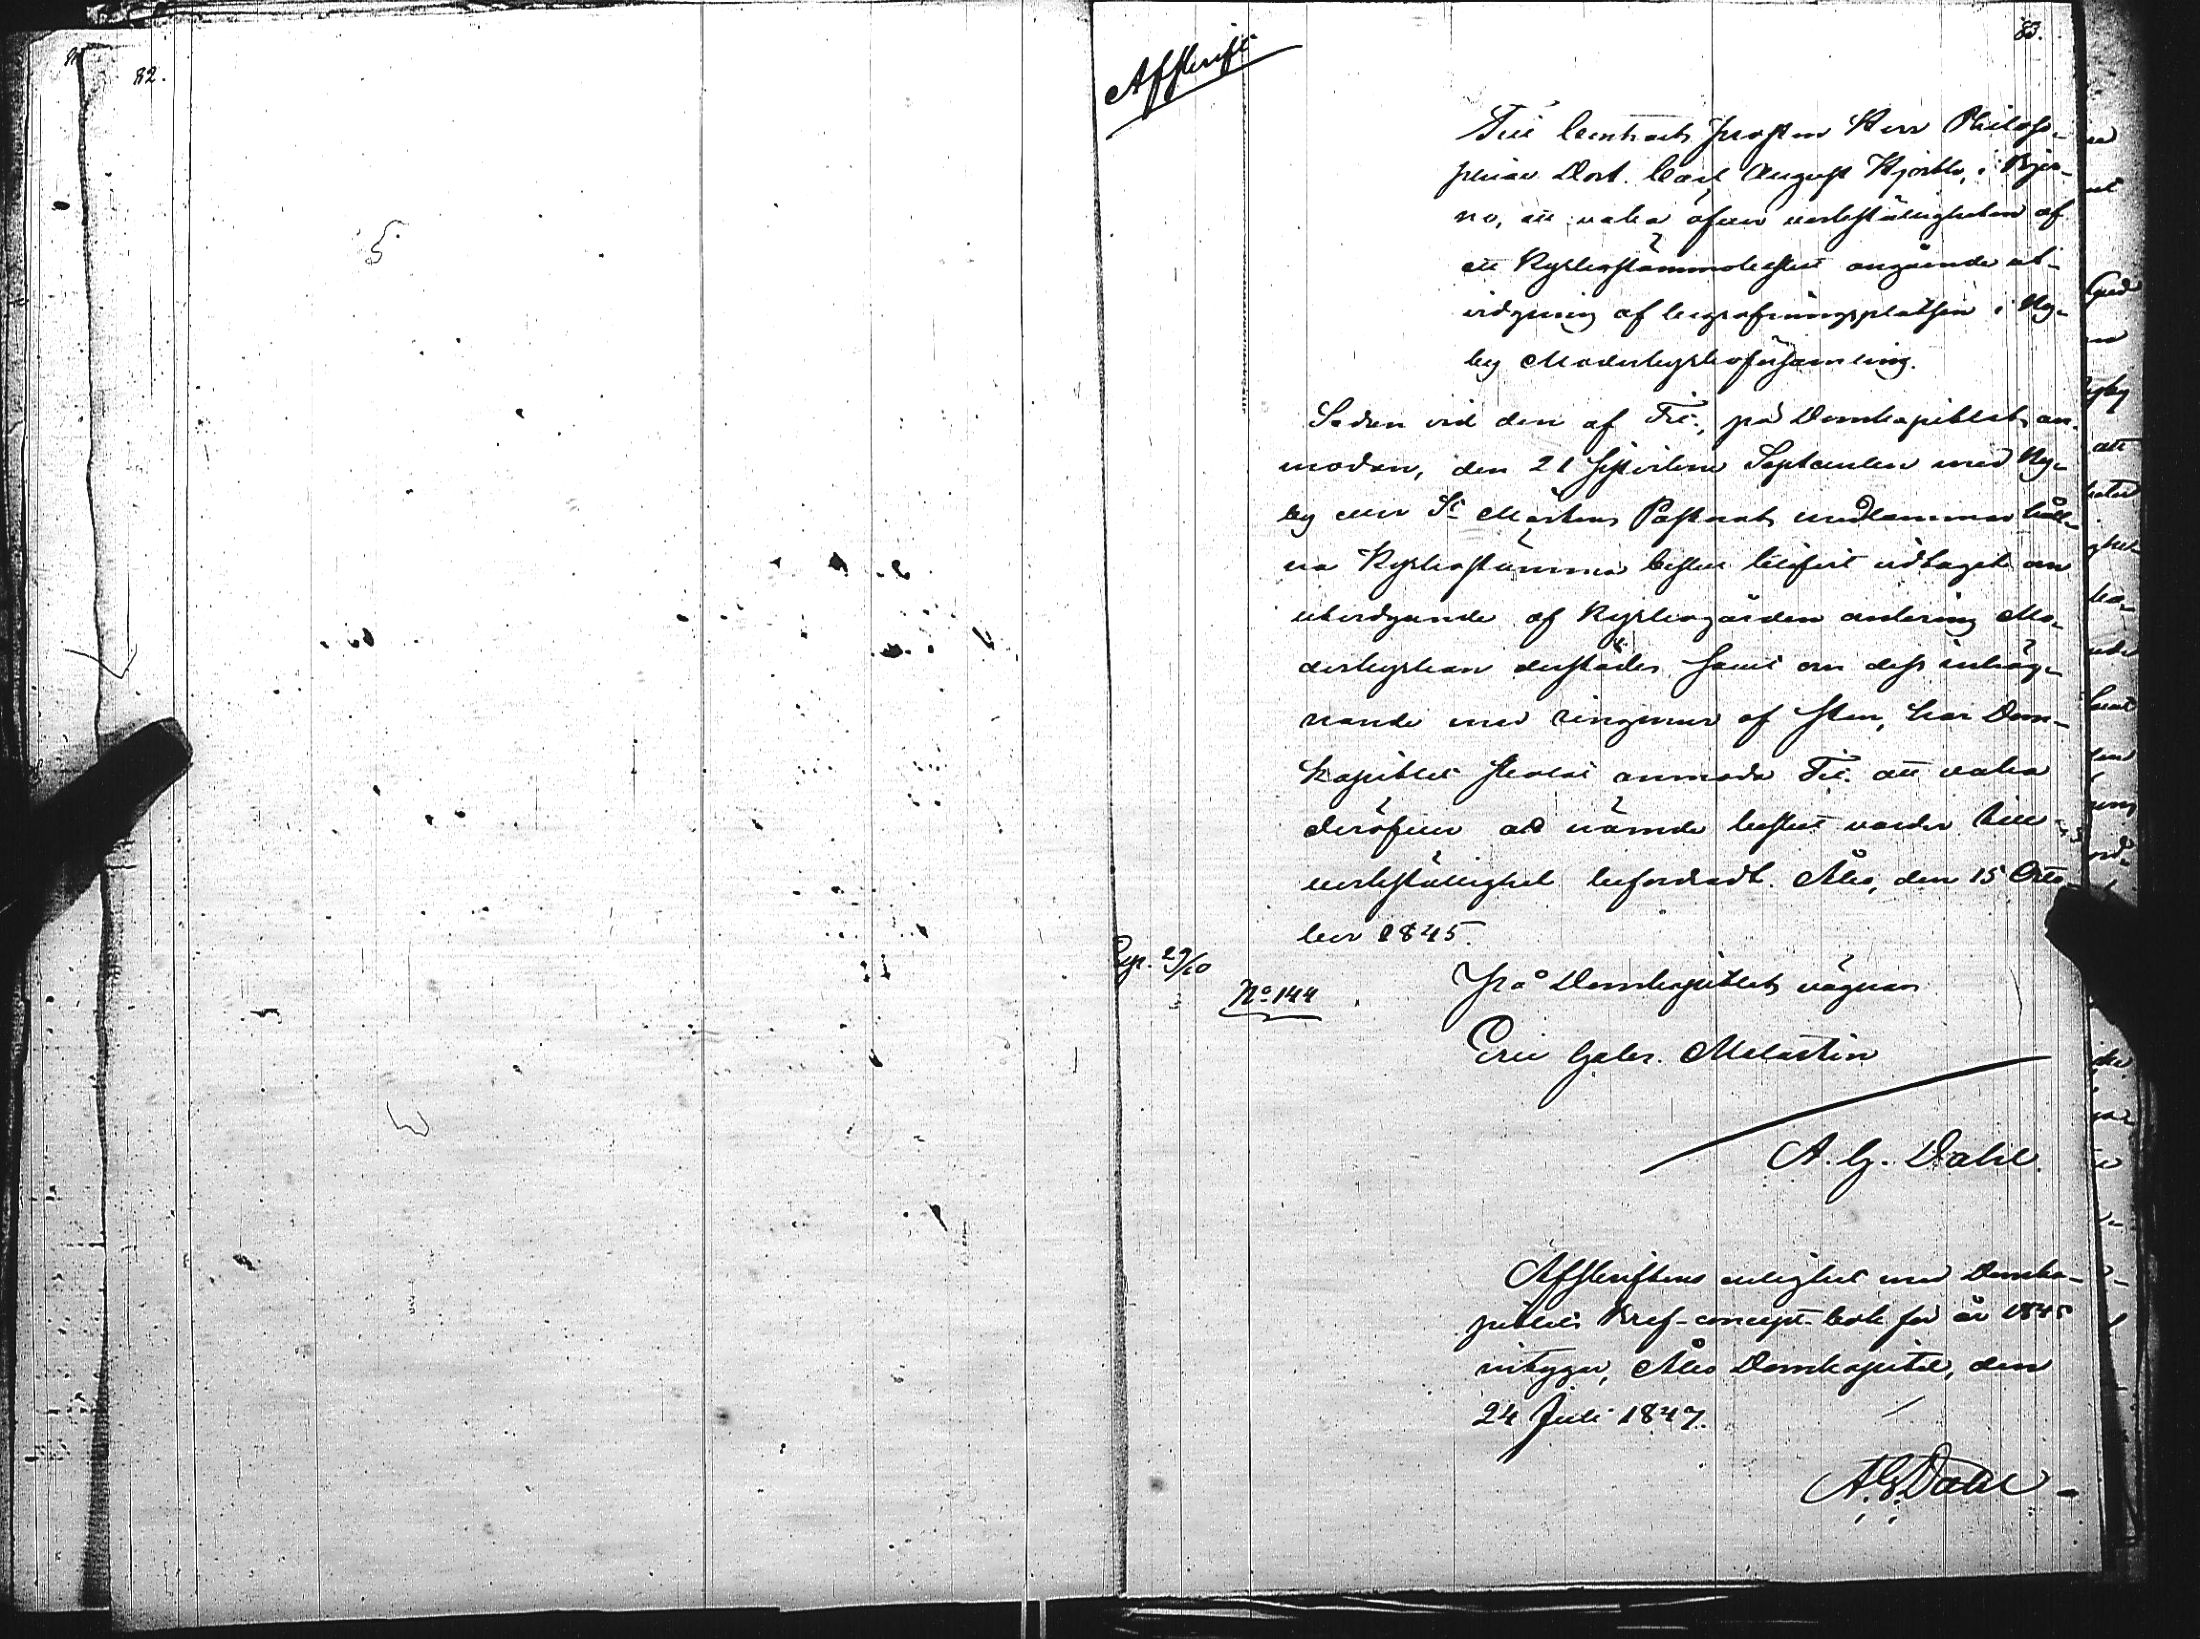 82.
83.
Afskrift
Till Contracts prosten Herr Philoso-
phiae Doct. Carl August Hjorth, i Bjer-
no, att vaka öfver verkställigheten af
ett Kyrkostämmobeslut angående ut-
vidgning af begrafningsplatsen i Ny-
by Moderkyrkoförsamling.
Sedan vid den af Tit., på Domkapitlets an-
modan, den 21 sistvikne September med Ny-
by eller St Mårtens Pastorats medlemmar håll-
na Kyrkostämma beslut blifvit vidtaget om
utvidgande af Kyrkogården omkring Mo-
derkyrkan derstädes samt om dess inhäg-
nande med ringmur af sten, har Dom-
kapitlet skolat anmoda Tit. att vaka
deröfver att nämnde beslut varder till
verkställighet befordradt. Åbo, den 15 Octo
ber 1845.
Exp. 29/10
No 144
På Domkapitlets vägnar
Eric Gabr. Melartin
A. G. Dahl.
Afskriftens enlighet med Domka-
pitlets Bref-concept-bok för år 1845
intygar, Åbo Domkapitel, den
24 Juli 1847.
A. G. Dahl